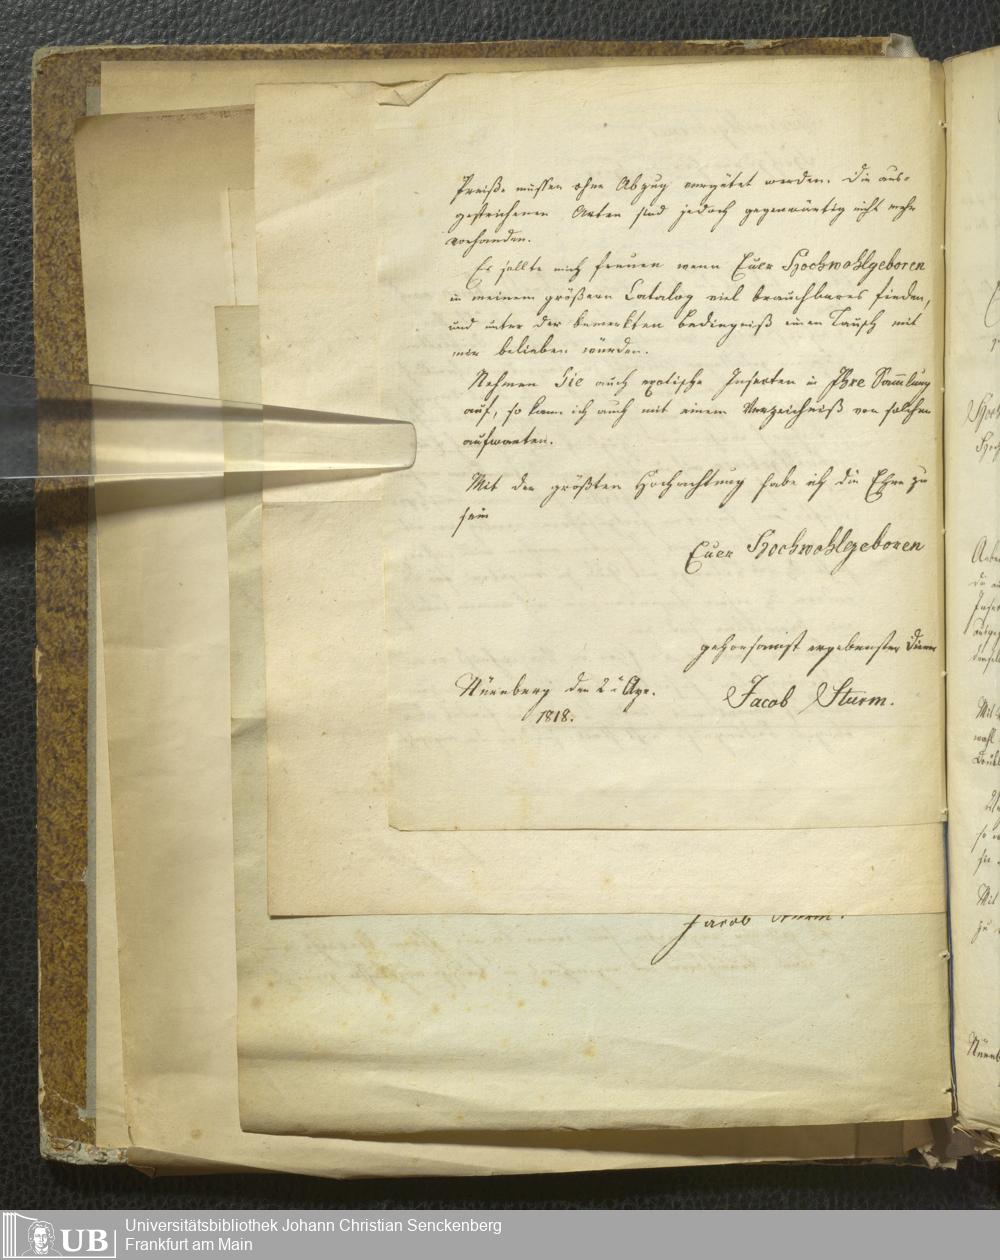 Preiße müssen ohne Abzug vergütet werden. Die aus-
gestrichenen Arten sind jedoch gegenwärtig nicht mehr
vorhanden.
Es sollte mich freuen wenn Euer Hochwohlgeboren
in meinem größern Catalog viel brauchbares finden,
und unter der bemerkten Bedingniß einen Tausch mit
mir belieben würden.
Nehmen Sie auch exotische Insecten in Ihre Sammlung
auf, so kann ich auch mit einem Verzeichniß von solchen
aufwarten.
Mit der größten Hochachtung habe ich die Ehre zu
sein
Euer Hochwohlgeboren
gehorsamst ergebenster Diener
Nürnberg den 2 Apr.
1818.
Jacob Sturm.
Jacob Sturm.
Universitätsbibliothek Johann Christian Senckenberg
Frankfurt am Main
UB